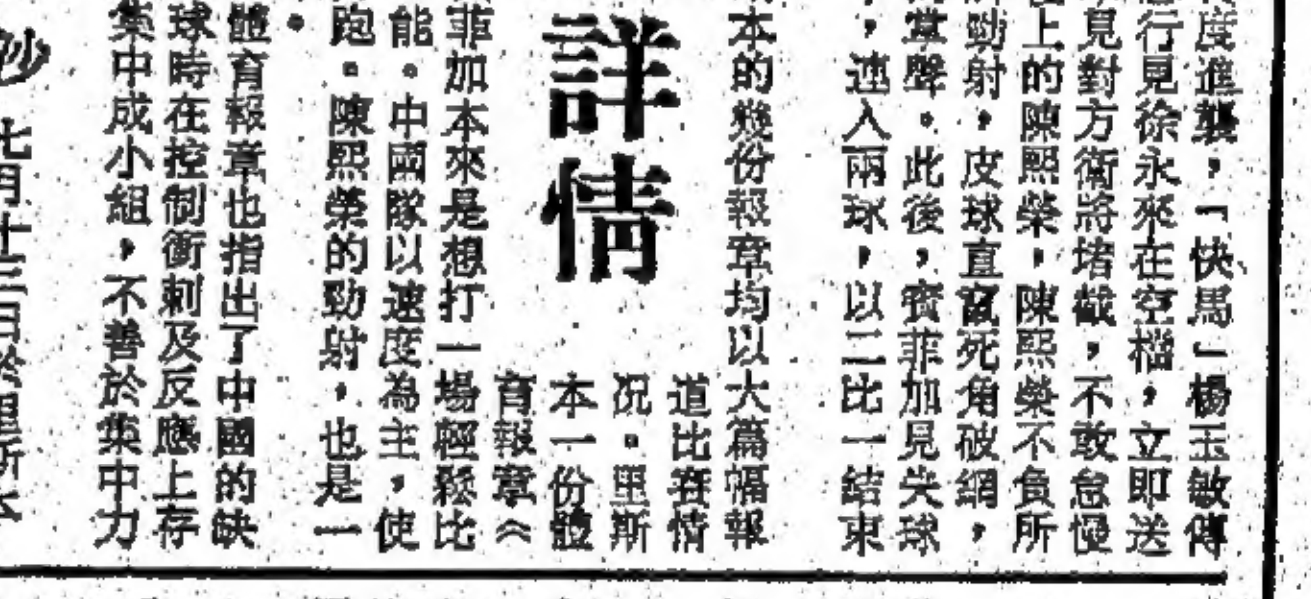 度進襲，「快馬」楊玉敏傳
行見徐永來在空檔，立即送
見對方衛將堵截，不敢怠慢
上的陳熙榮，陳熙榮不負所
勁射，皮球直竄死角破網，
掌聲。此後，賓菲加見失球
，連入兩球，以二比一結束
本的幾份報章均以大篇幅報
道比賽情
况。里斯
本一份體
育報章《
詳情
菲加本來是想打一場輕鬆比
能。中國隊以速度為主，使
跑。陳熙榮的勁射，也是一
。
體育報章也指出了中國的缺
球時在控制衝刺及反應上存
集中成小組，不善於集中力
七月十三日於里斯本